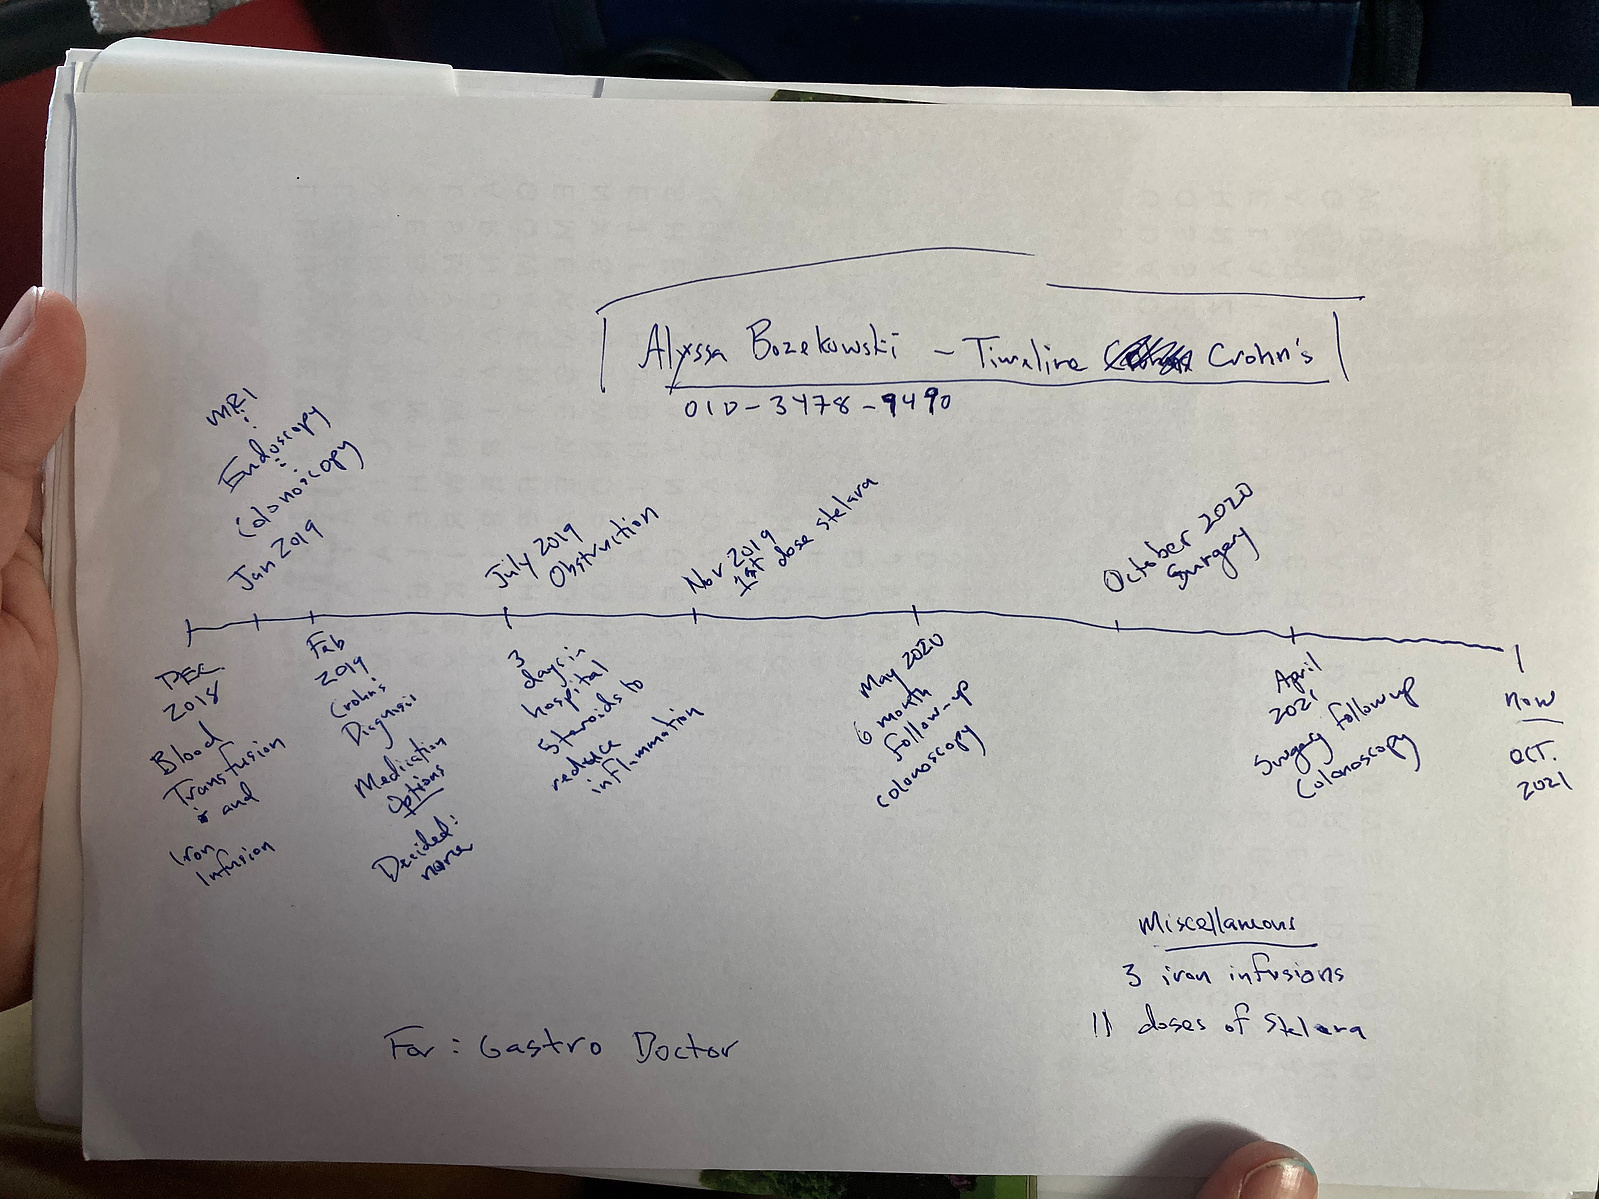 Alyssa Bozekowski - Timeline Crohn's
010-3478-9490
MRI
Endoscopy
Colonoscopy
Jan 2019
July 2019
Obstruction
Nov 2019
1st dose stelara
October 2020
Surgery
DEC
2018
Blood
Transfusion
and
Iron
Infusion
Feb
2019
Crohn's
Diagnosis
Medication
Options
Decided:
none
3
days in
hospital
Steroids to
reduce
inflammation
May 2020
6 month
follow-up
colonoscopy
April
2021
Surgery followup
Colonoscopy
now
OCT.
2021
Miscellaneous
3 iron infusions
11 doses of Stelara
For: Gastro Doctor